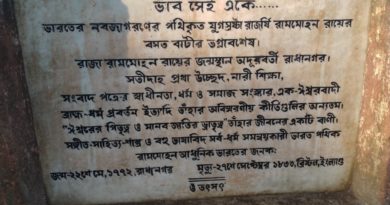 ভাব সেই একে....
ভারতের নবজাগরণের পথিকৃত যুগস্রষ্টা রাজর্ষি রামমোহন রায়ের
বসত বাটীর ভগ্নাবশেষ।
রাজা রামমোহন রায়ের জন্মস্থান অদূরবর্তী রাধানগর।
সতীদাহ প্রথা উচ্ছেদ, নারী শিক্ষা,
সংবাদ পত্রের স্বাধীনতা, ধর্ম ও সমাজ সংস্কার, এক-ঈশ্বরবাদী
ব্রাহ্ম-ধর্ম প্রবর্তন ইত্যাদি তাঁহার অবিস্মরণীয় কীর্তিগুলির অন্যতম।
"ঈশ্বরের পিতৃত্ব ও মানব জাতির ভ্রাতৃত্ব" তাঁহার জীবনের একটি বাণী।
সঙ্গীত-সাহিত্য-শাস্ত্র ও বহু ভাষাবিদ সর্ব-ধর্ম সমন্বয়কারী ভারত পথিক
রামমোহন আধুনিক ভারতের জনক।
জন্ম-২২শে মে, ১৭৭২, রাধানগর মৃত্যু-২৭শে সেপ্টেম্বর ১৮৩৩, ব্রিষ্টল, ইংলণ্ড
ওঁ তৎসৎ